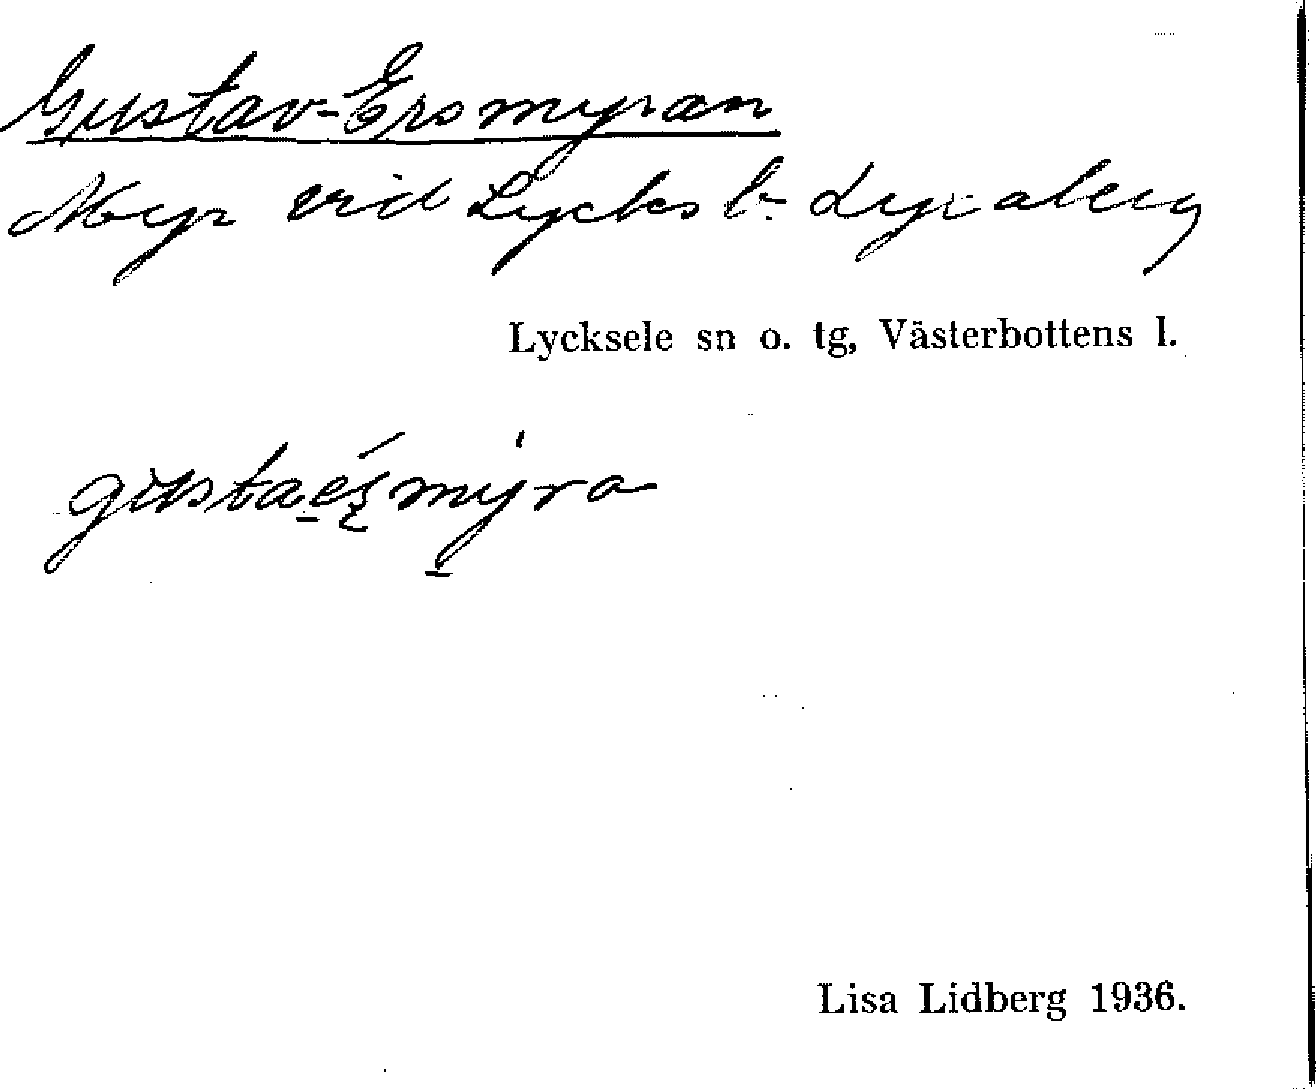 Gustav-Ersmyran
Myr vid Lycksb.
Lycksele sn o. tg, Västerbottens l.
gustaésmyra
Lisa Lidberg 1936.